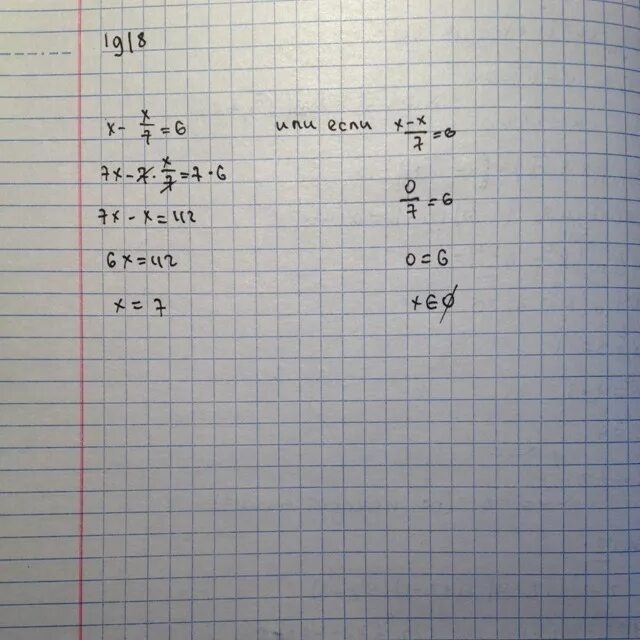 19/8
x - x/7 = 6
7x - 7 · x/7 = 7 · 6
7x - x = 42
6x = 42
x = 7
или если x-x/7 = 6
0/7 = 6
0 = 6
x ∈ ∅